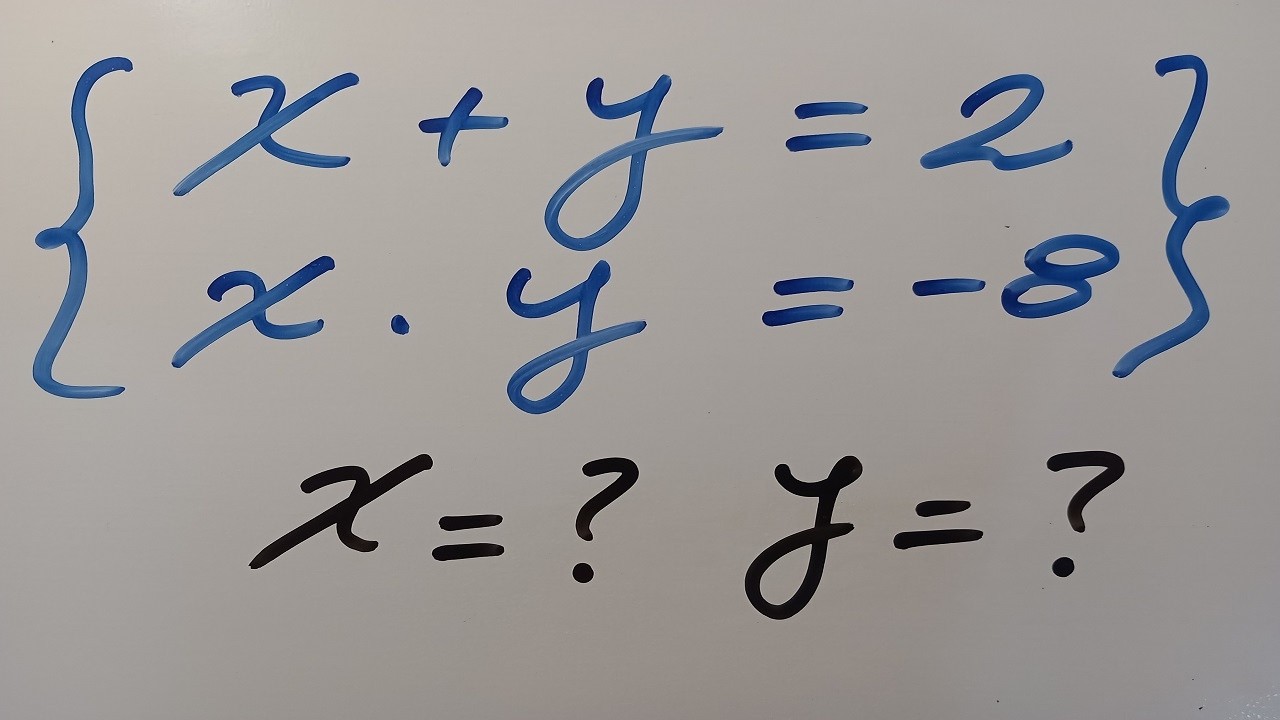 { x + y = 2 }
{ x . y = -8 }
x = ? y = ?